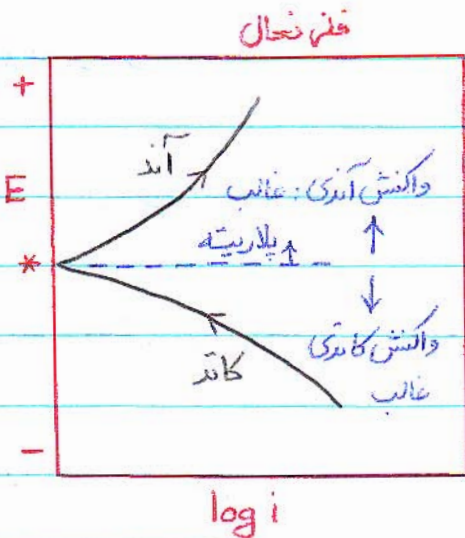 فلز فعال
+
آند
E
واکنش آندی: غالب
پلاریته
*
واکنش کاتدی
غالب
کاتد
-
log i